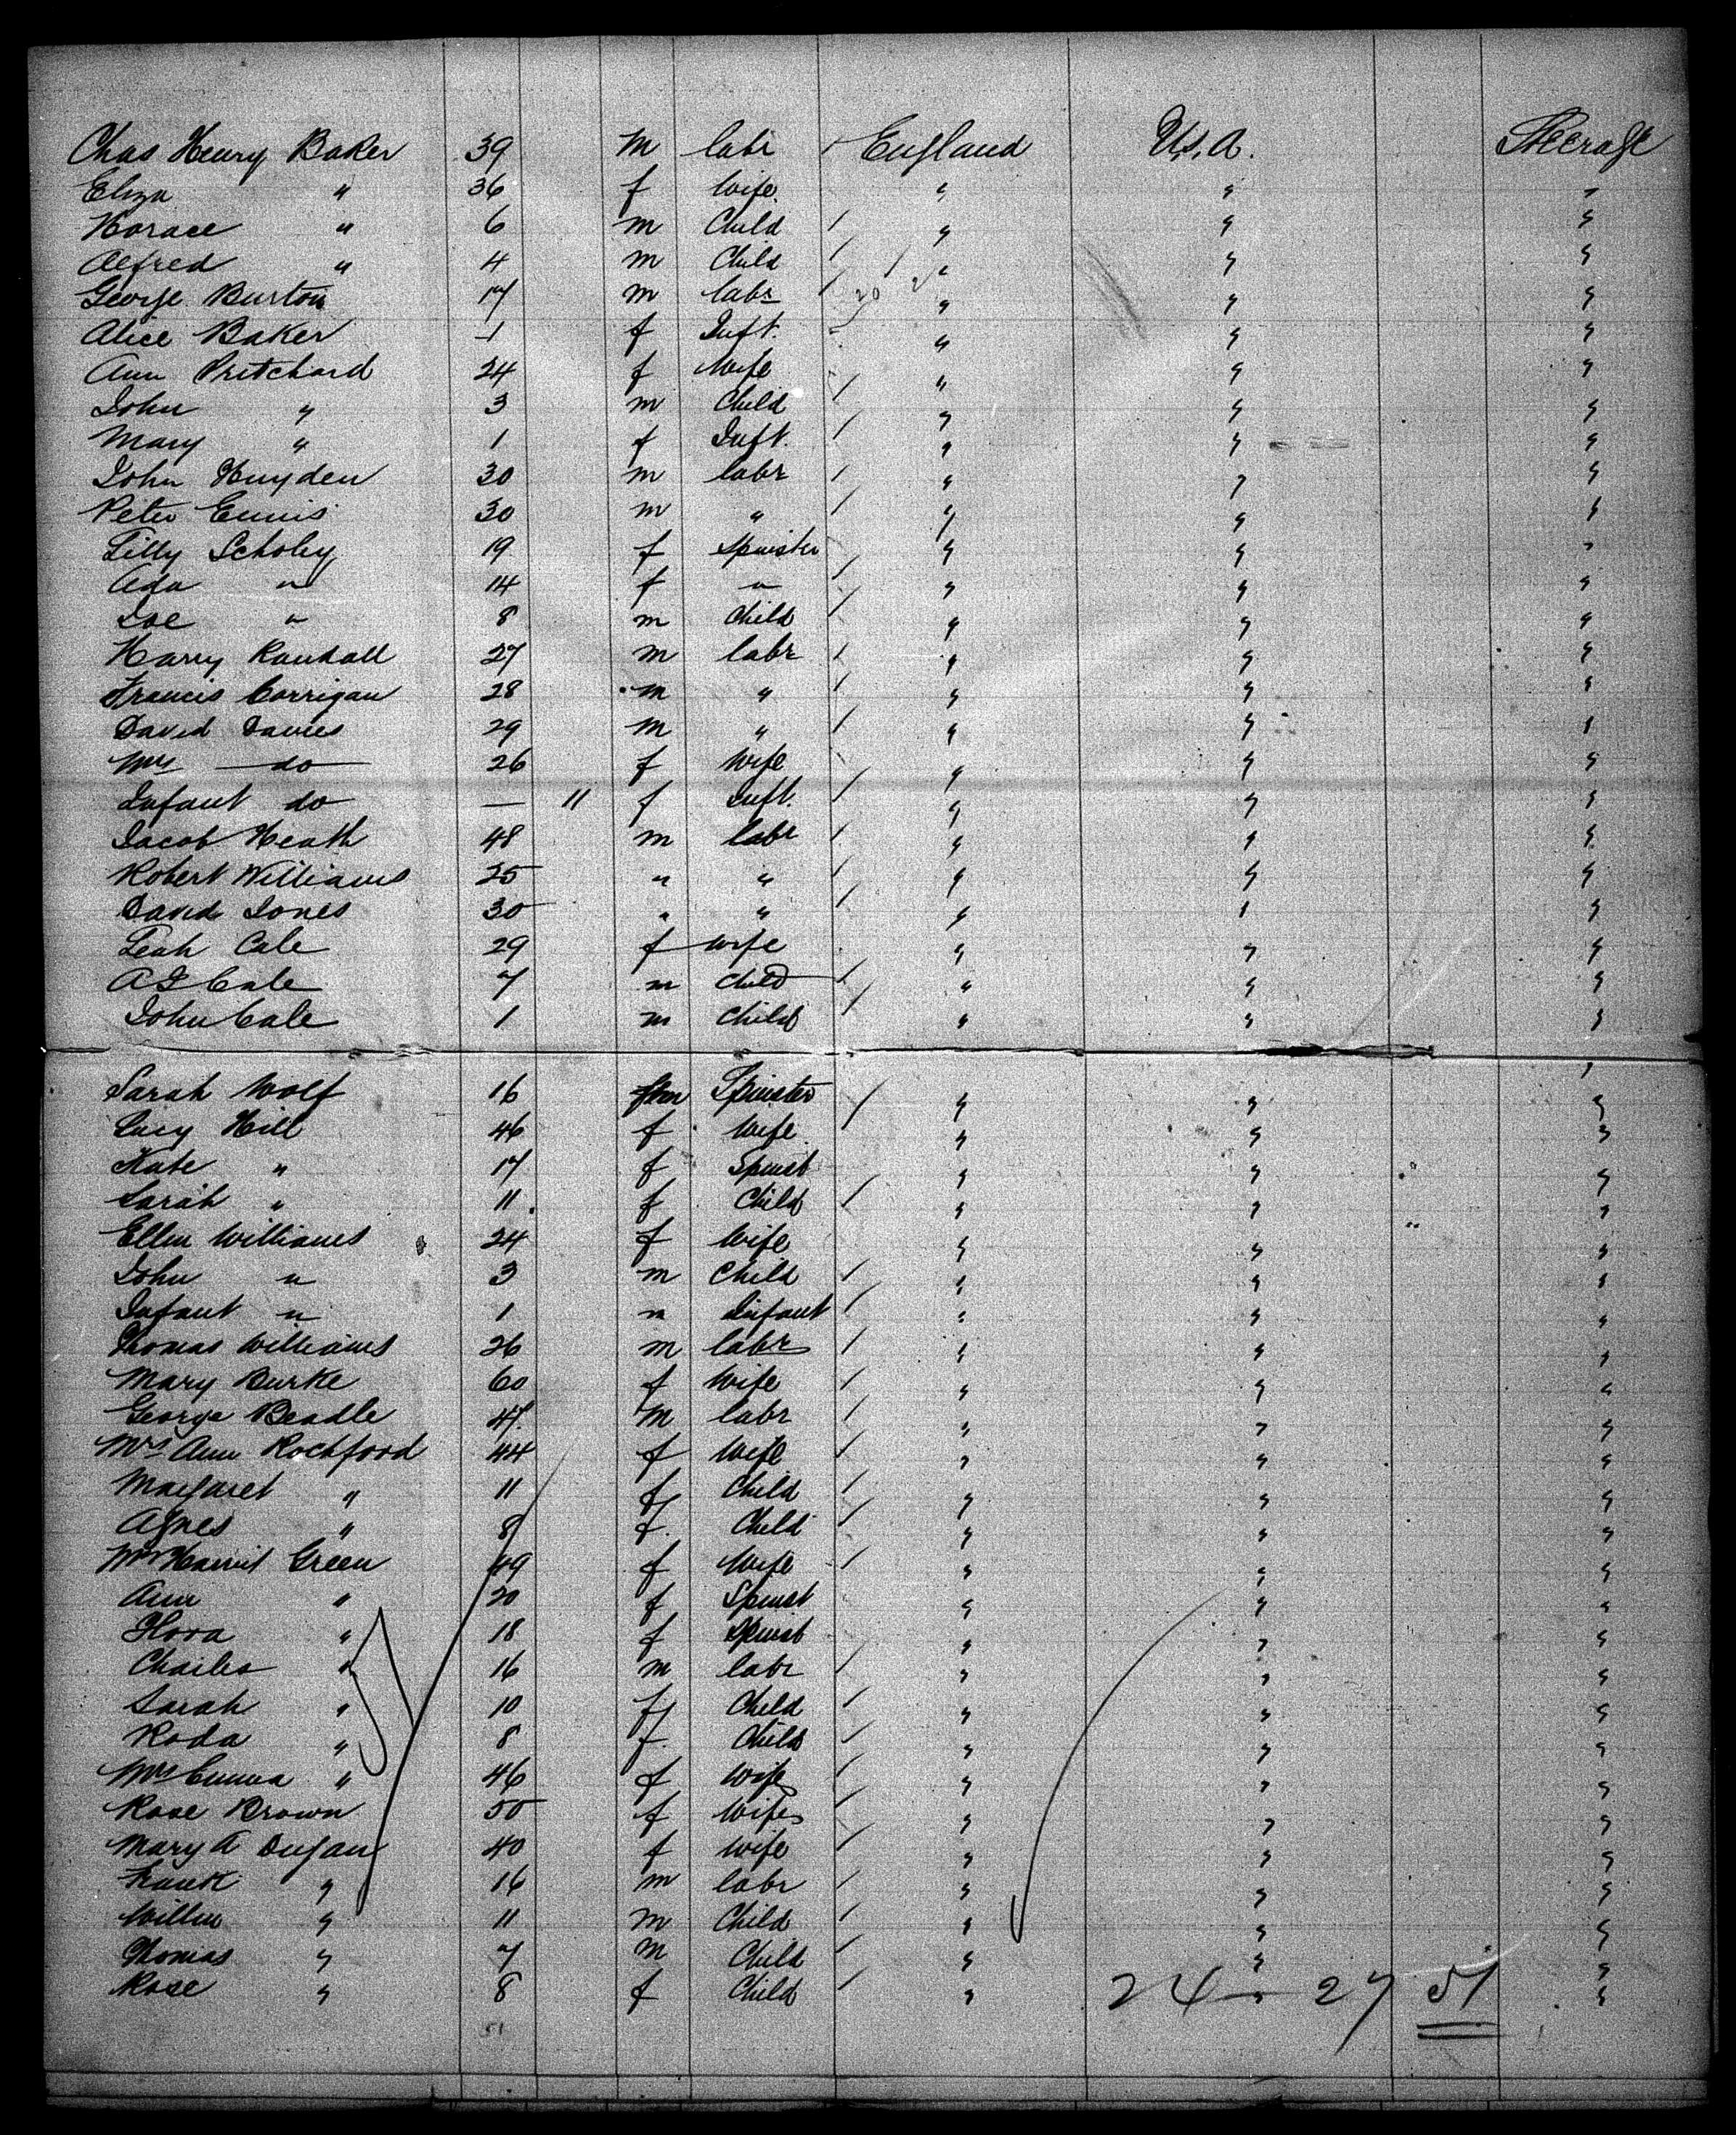 Chas Henry Baker 39 M labr England U.S.A. Steerage
Eliza " 36 f Wife " " "
Horace " 6 m Child " " "
Alfred " 4 m Child " " "
George Burton 17 m labr " " "
Alice Baker 1 f Inft. " " "
Ann Pritchard 24 f Wife " " "
John " 3 m Child " " "
Mary " 1 f Inft. " " "
John Huyden 30 m labr " " "
Peter Ennis 30 m " " " "
Tilly Scholey 19 f Spinster " " "
Ada " 14 f " " " "
Joe " 8 m Child " " "
Harry Randall 27 m labr " " "
Francis Corrigan 28 m " " " "
David Davies 29 m " " " "
Mrs do 26 f Wife " " "
Infant do — 11 f Inft. " " "
Jacob Heath 48 m labr " " "
Robert Williams 25 " " " " "
David Jones 30 " " " " "
Leah Cale 29 f wife " " "
A J Cale 7 m Child " " "
John Cale 1 m Child " " "
Sarah Wolf 16 Spinster " " "
Lucy Hill 46 f. Wife " " "
Kate " 17 f Spinst " " "
Sarah " 11 f Child " " "
Ellen Williams 24 f Wife " " "
John " 3 m Child " " "
Infant " 1 m Infant " " "
Thomas Williams 26 m labr " " "
Mary Burke 60 f Wife " " "
George Beadle 47 m labr " " "
Mrs Ann Rochford 44 f Wife " " "
Margaret " 11 f Child " " "
Agnes " 8 f. Child " " "
Mrs Harriet Green 49 f Wife " " "
Ann " 20 f Spinst " " "
Flora " 18 f Spinst " " "
Charles " 16 m labr " " "
Sarah " 10 f Child " " "
Roda " 8 f. Child " " "
Mrs Emma " 46 f Wife " " "
Rose Brown 50 f Wife " " "
Mary A Dugan 40 f Wife " " "
Frank " 16 m labr " " "
Willm " 11 m Child " " "
Thomas " 7 m Child " " "
Rose " 8 f Child " " "
24 — 27 51
51